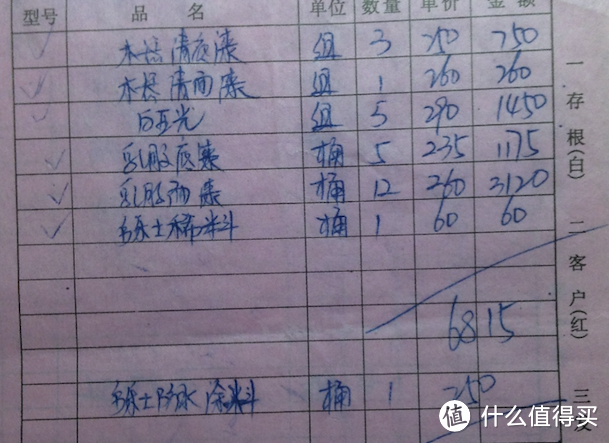 型号 品名 单位 数量 单价 金额
木器清底漆 组 3 250 750
木器清面漆 组 1 260 260
白亚光 组 5 290 1450
乳胶底漆 桶 5 235 1175
乳胶面漆 桶 12 260 3120
士稀料 桶 1 60 60
6815
士防水涂料 桶 1 250
一存根(白) 二客户(红) 三
值 什么值得买